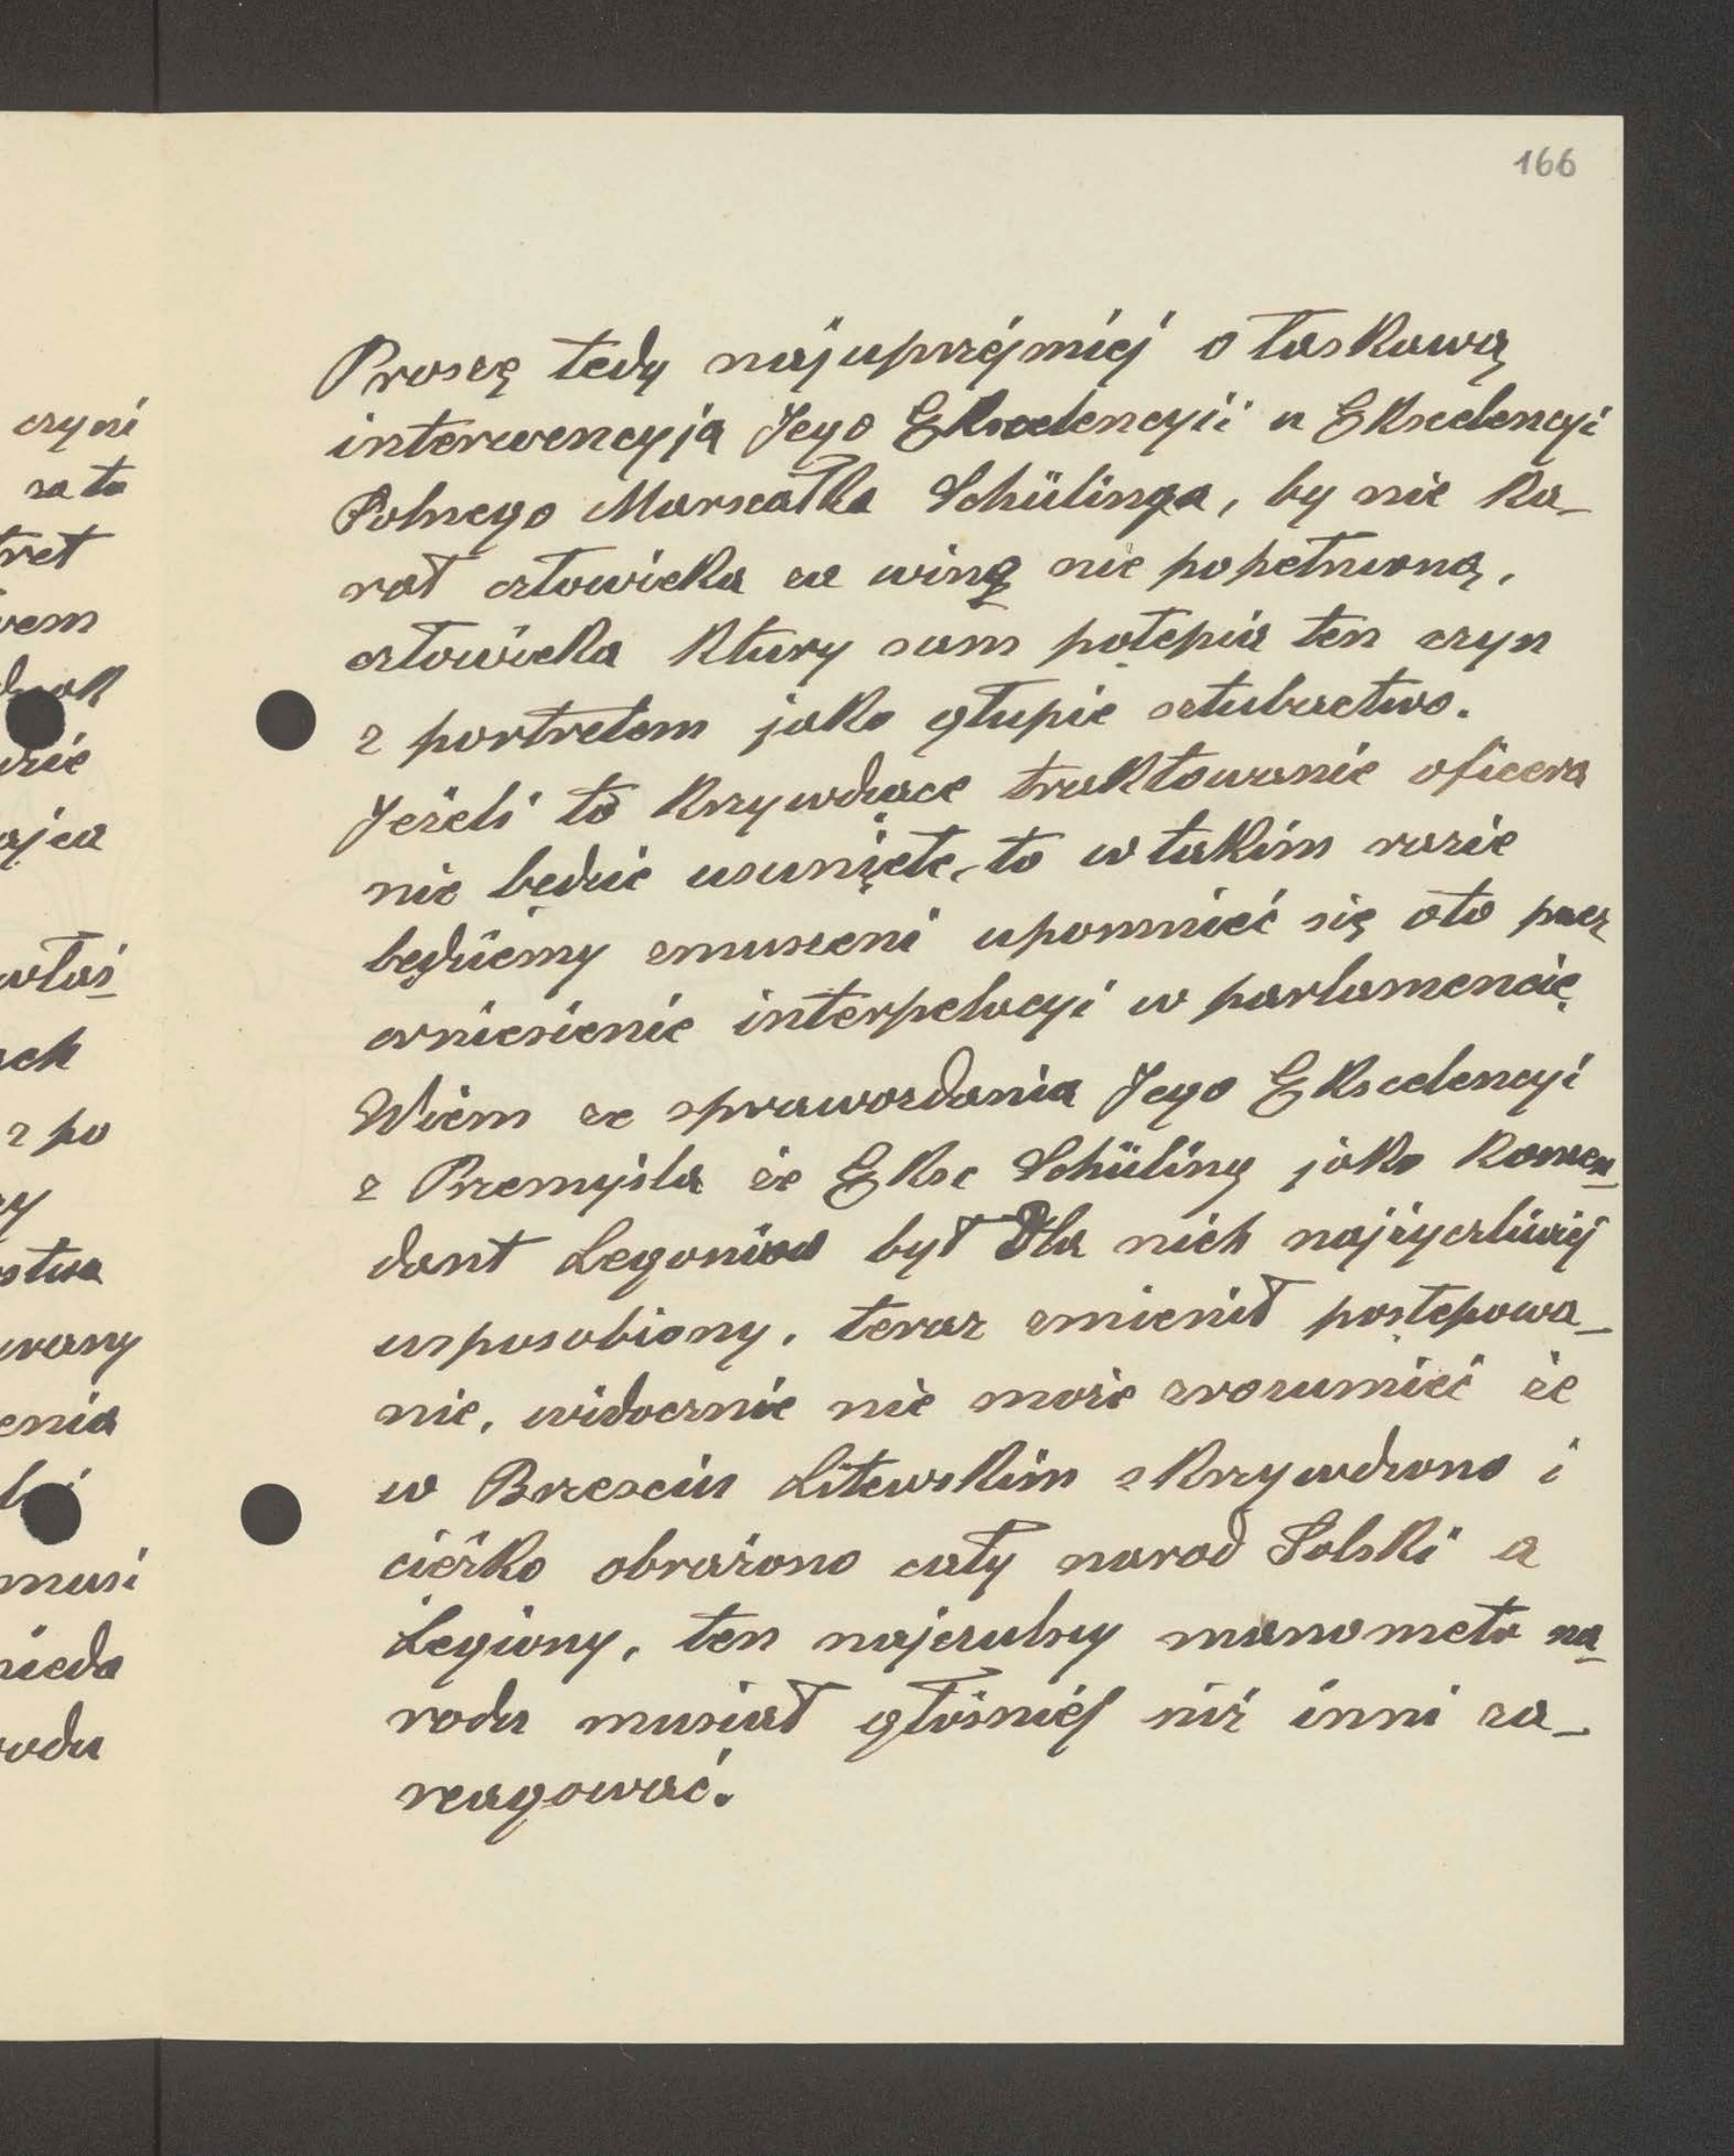 166
Proszę tedy najuprzejmiej o łaskawą
interwencyją Jego Ekscelencyii u Ekscelencyi
Polnego Marszałka Schülinga, by nie ka_
rał człowieka za winę nie popełnioną,
człowieka ktury sam potępia ten czyn
z portretem jako głupie sztubactwo.
Jeżeli to krzywdzące traktowanie oficera
nie będzie usunięte, to w takim razie
będziemy zmuszeni upomnieć się oto przez
wniesienie interpelacyi w parlamencie
Wiem ze sprawozdania Jego Ekscelencyi
z Przemyśla że Eksc Schüling jako komen_
dant Legoniów był dla nich najżyczliwiej
usposobiony, teraz zmienił postępowa_
nie, widocznie nie może zrozumieć że
w Brzesciu Litewskim skrzywdzono i
ciężko obrażono cały narod Polski a
Legiony, ten najczulszy manometr na_
rodu musiał głośniej niż inni za_
reagować.
czyni
za to
tret
wem
ająca
właś_
ach
z po
stwa
wany
enia
musi
nieda
rodu